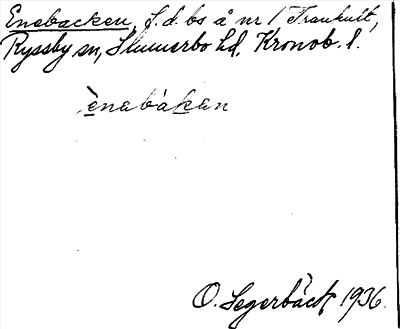 Enebacken, f.d. bs å nr 1 Trankult,
Ryssby sn, Sunnerbo hd, Kronob. l.
ènabàkan
O. Segerbäck 1936.